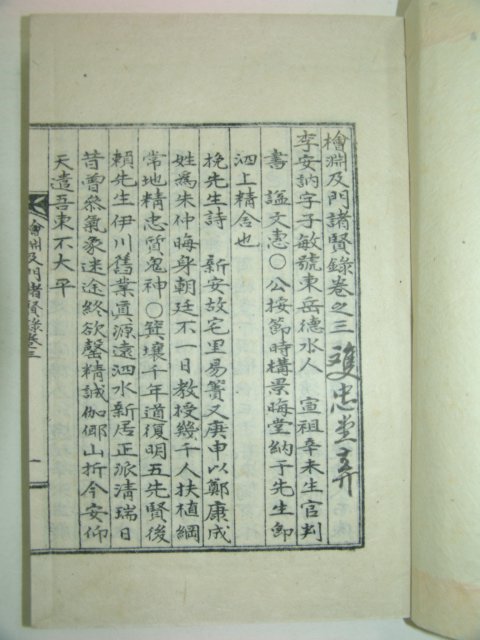 檜淵及門諸賢錄卷之三 雙忠堂弆
李安訥字子敏號東岳德水人 宣祖辛未生官判
書 謚文惠○公按節時構景晦堂納于先生卽
泗上精舍也
挽先生詩 新安故宅里易簀又庚申以鄭康成
姓爲朱仲晦身朝廷不一日教授幾千人扶植綱
常地精忠質鬼神○箕壤千年道復明五先賢後
賴先生伊川舊業眞源遠泗水新居正派淸瑞日
昔曾叅氣象迷途終欲罄精誠伽倻山折今安仰
天遣吾東不太平
檜淵及門諸賢錄卷三 一